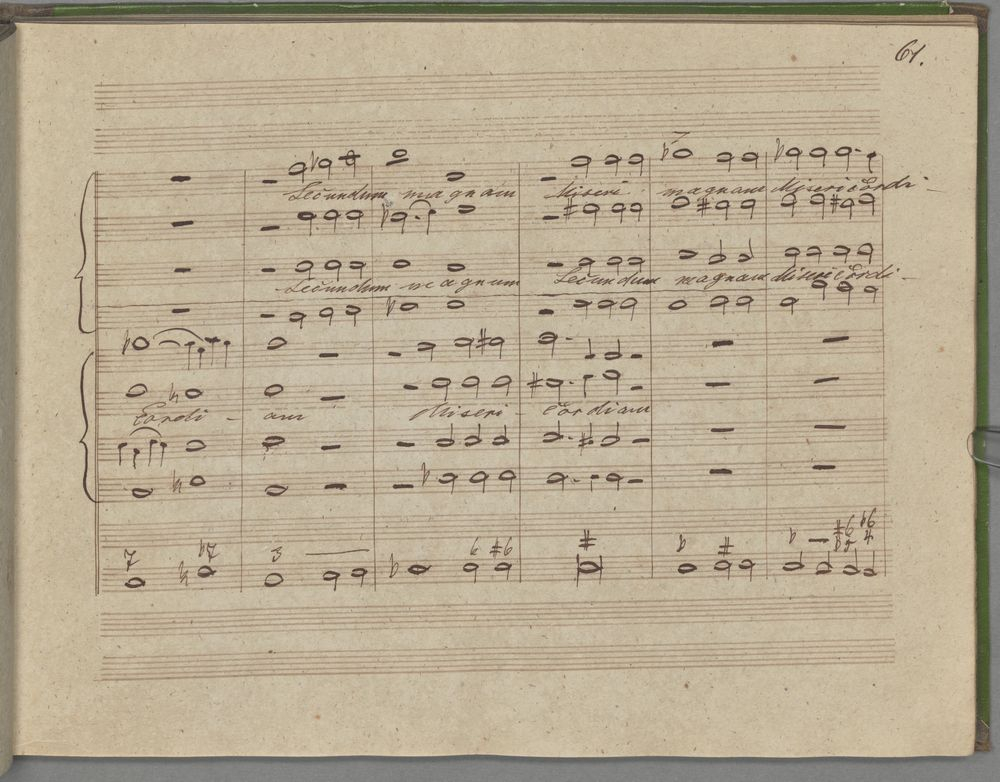 61.
Secundum magnam Miseri magnam Misericordi -
Secundum magnum Secundum magnam Misericordi -
Cordi - am Miseri - cordiam
7 ♮7 3 6 #6 # ♭ # ♭